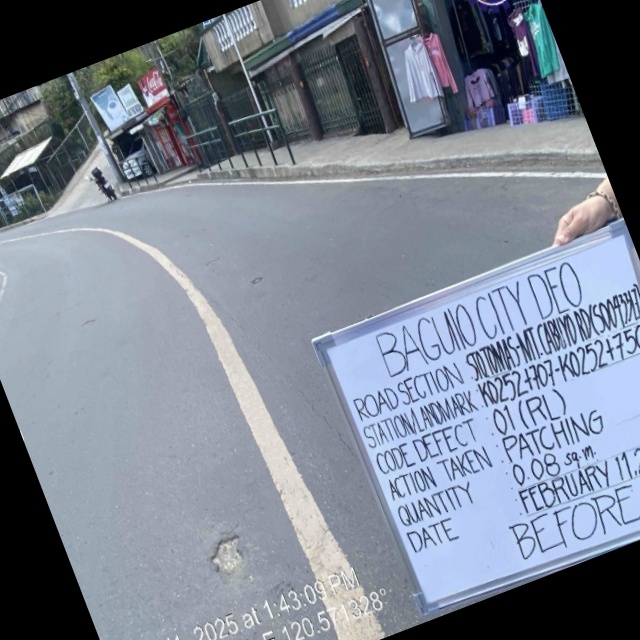 BAGUIO CITY DEO
ROAD SECTION
STATION/LANDMARK K0252+407-K0252+750
CODE DEFECT 01 (RL)
ACTION TAKEN PATCHING
QUANTITY 0.08 sq.m
DATE FEBRUARY 11,2
BEFORE
11, 2025 at 1:43:09 PM
E 120.571328°